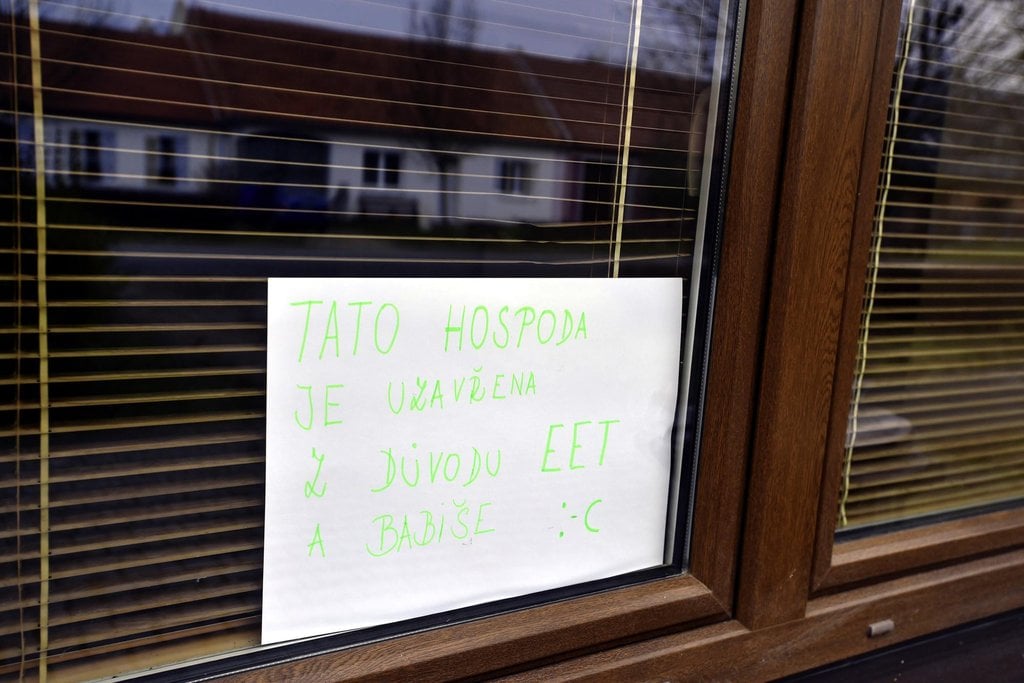 TATO HOSPODA
JE UZAVŘENA
Z DŮVODU EET
A BABIŠE :-C